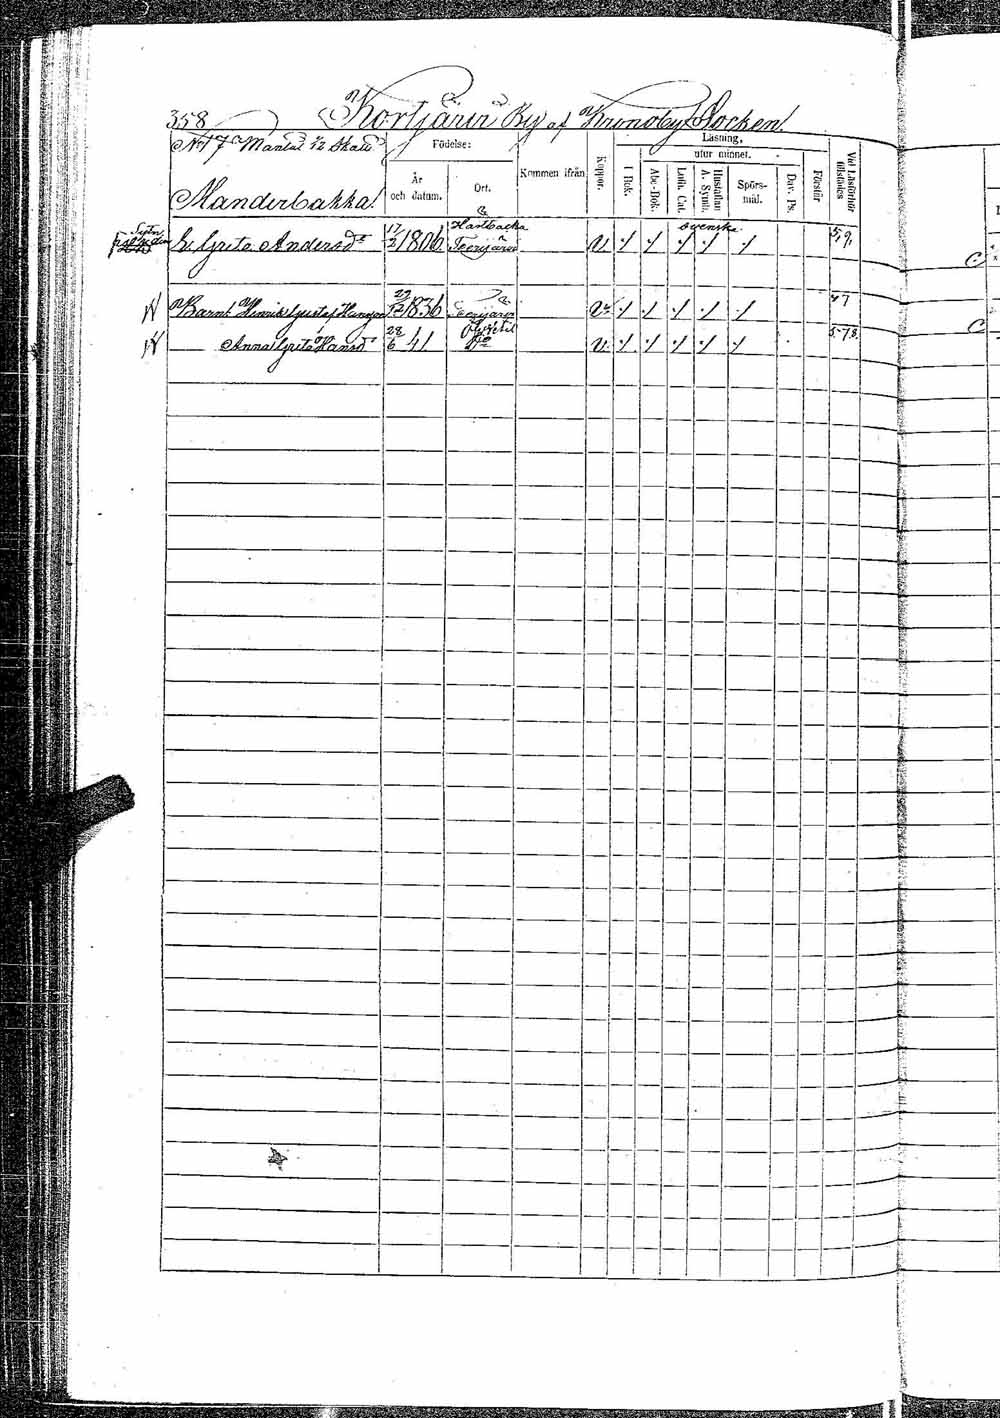 358 Kortjärvi By af Kronoby Socken
No 17 Mantal 1/12 Skatt
Manderbakka
Födelse:
År och datum.
Ort.
Kommen ifrån
Koppor.
Läsning,
I Bok.
utur minnet.
Abc-Bok.
Luth. Cat.
Hustaflan A. Symb.
Spörs-mål.
Dav. Ps.
Förstår
Vid Läsförhör tillstädes
E. Greta Andersdr 17/2 1806 Hästbacka Teerijärvi v. svenska 5,9,
Barn: Henrik Gustaf Hansson 29/12 1836 Teerijärvi v. 47
Anna Greta Hansdr 28/6 41 Do v. 5-7,8.